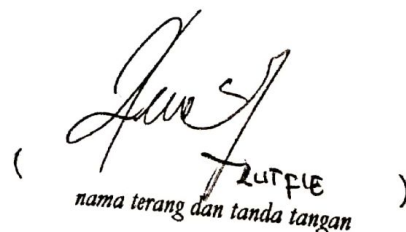 ( LUTFIE )
nama terang dan tanda tangan